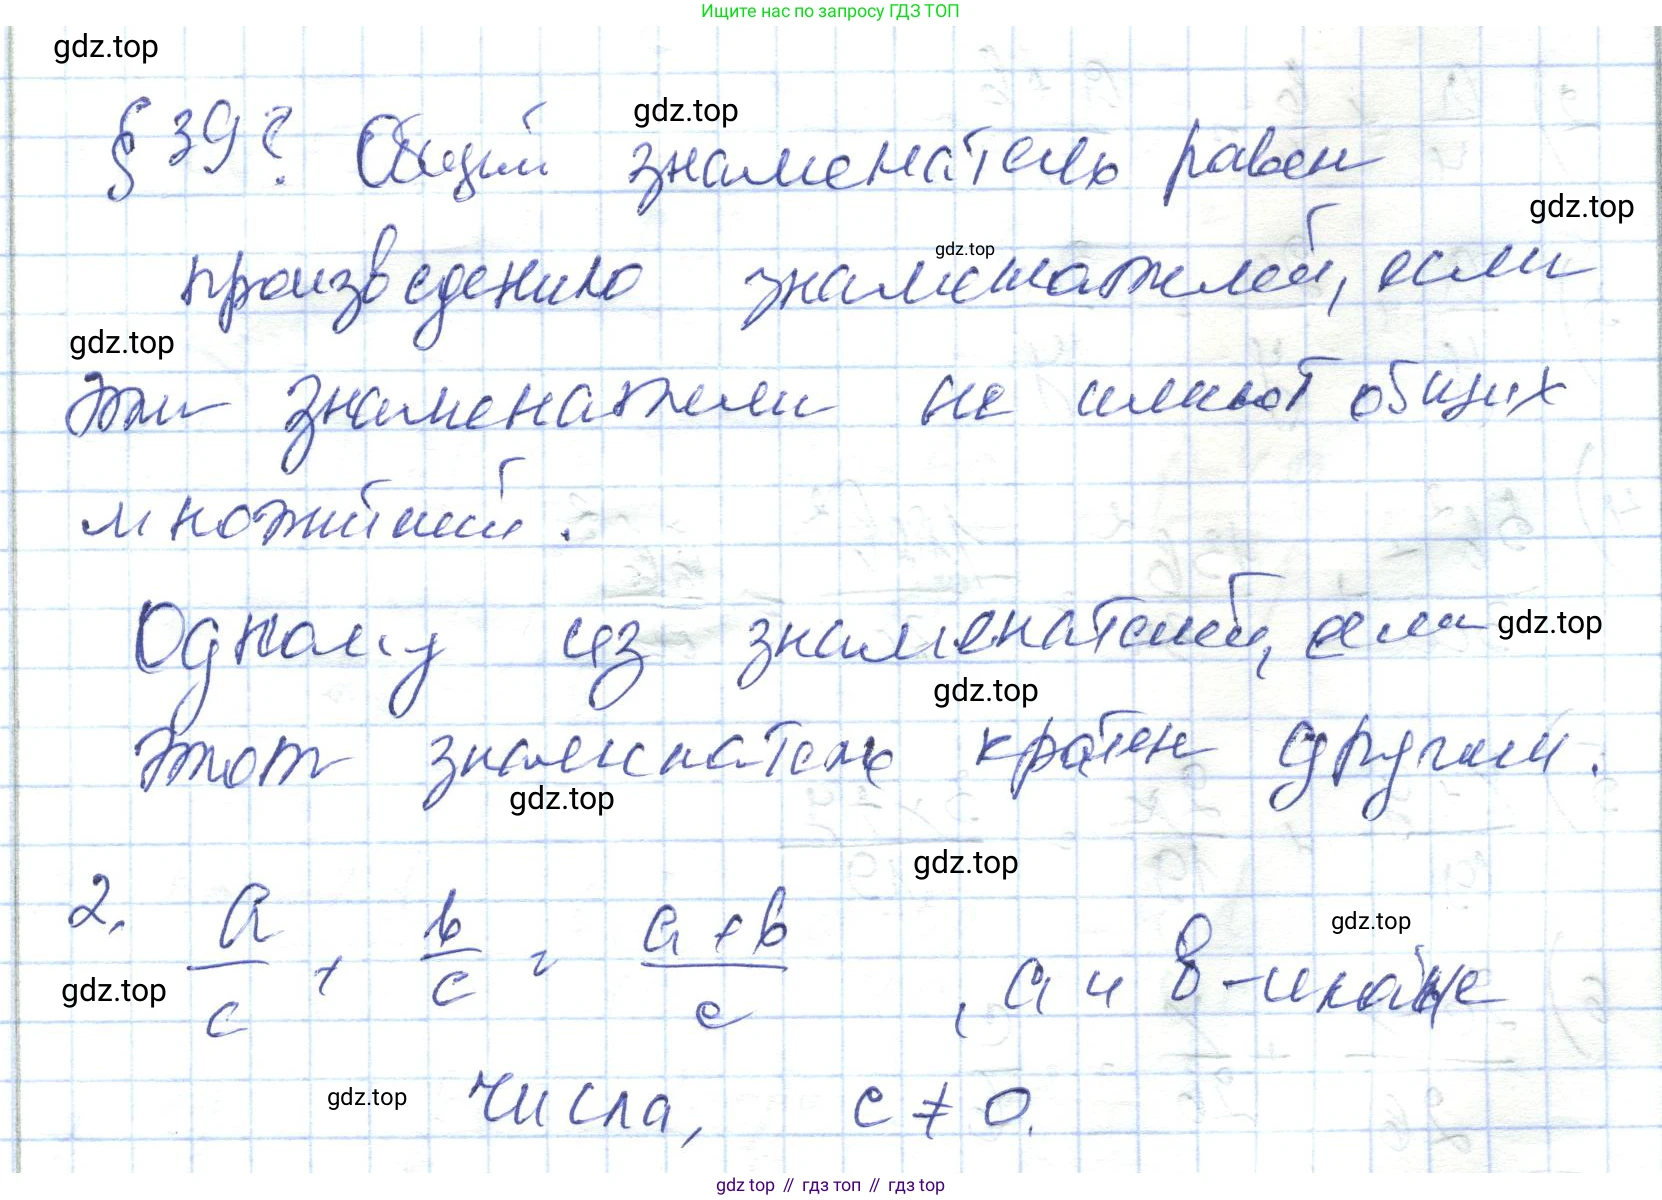 Ищите нас по запросу ГДЗ ТОП
gdz.top
§ 39? Общий знаменатель равен
gdz.top
gdz.top
произведению знаменателей, если
gdz.top
gdz.top
Эти знаменатели не имеют общих
множителей.
Одному из знаменателей, если
gdz.top
gdz.top
Этот знаменатель кратен другим.
gdz.top
gdz.top
2. a/c + b/c = a+b/c, a и b -
gdz.top
gdz.top
числа, c ≠ 0.
gdz.top
gdz top // гдз топ // гдз top